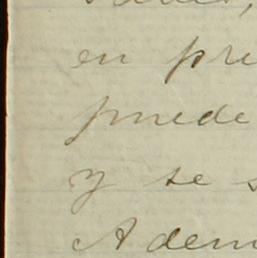 en pre
puede
y se s
Adem